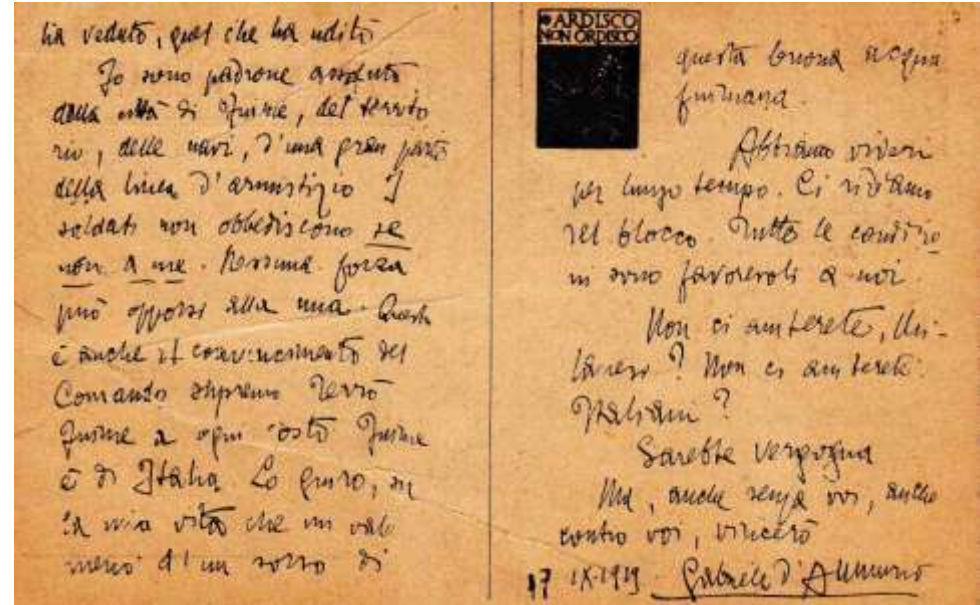 ha veduto, quel che ha udito
Io sono padrone assoluto
della città di Fiume, del territo
rio, delle navi, d'una gran parte
della linea d'armistizio I
soldati non obbediscono se
non a me. Nessuna forza
può opporsi alla mia. Questo
è anche il convincimento del
Comando supremo Terrò
Fiume a ogni costo Fiume
è di Italia. Lo giuro, su
la mia vita che mi vale
meno d'un sorso di
ARDISCO
NON ORDISCO
questa buona acqua
fiumana.
Abbiamo viveri
per lungo tempo. Ci ridiamo
del blocco. Tutte le condizio
ni sono favorevoli a noi.
Non ci aiuterete, Mi-
lanesi? Non ci aiuterete
Italiani?
Sarebbe vergogna
Ma, anche senza voi, anche
contro voi, vincerò
17 IX.1919 - Gabriele d'Annunzio